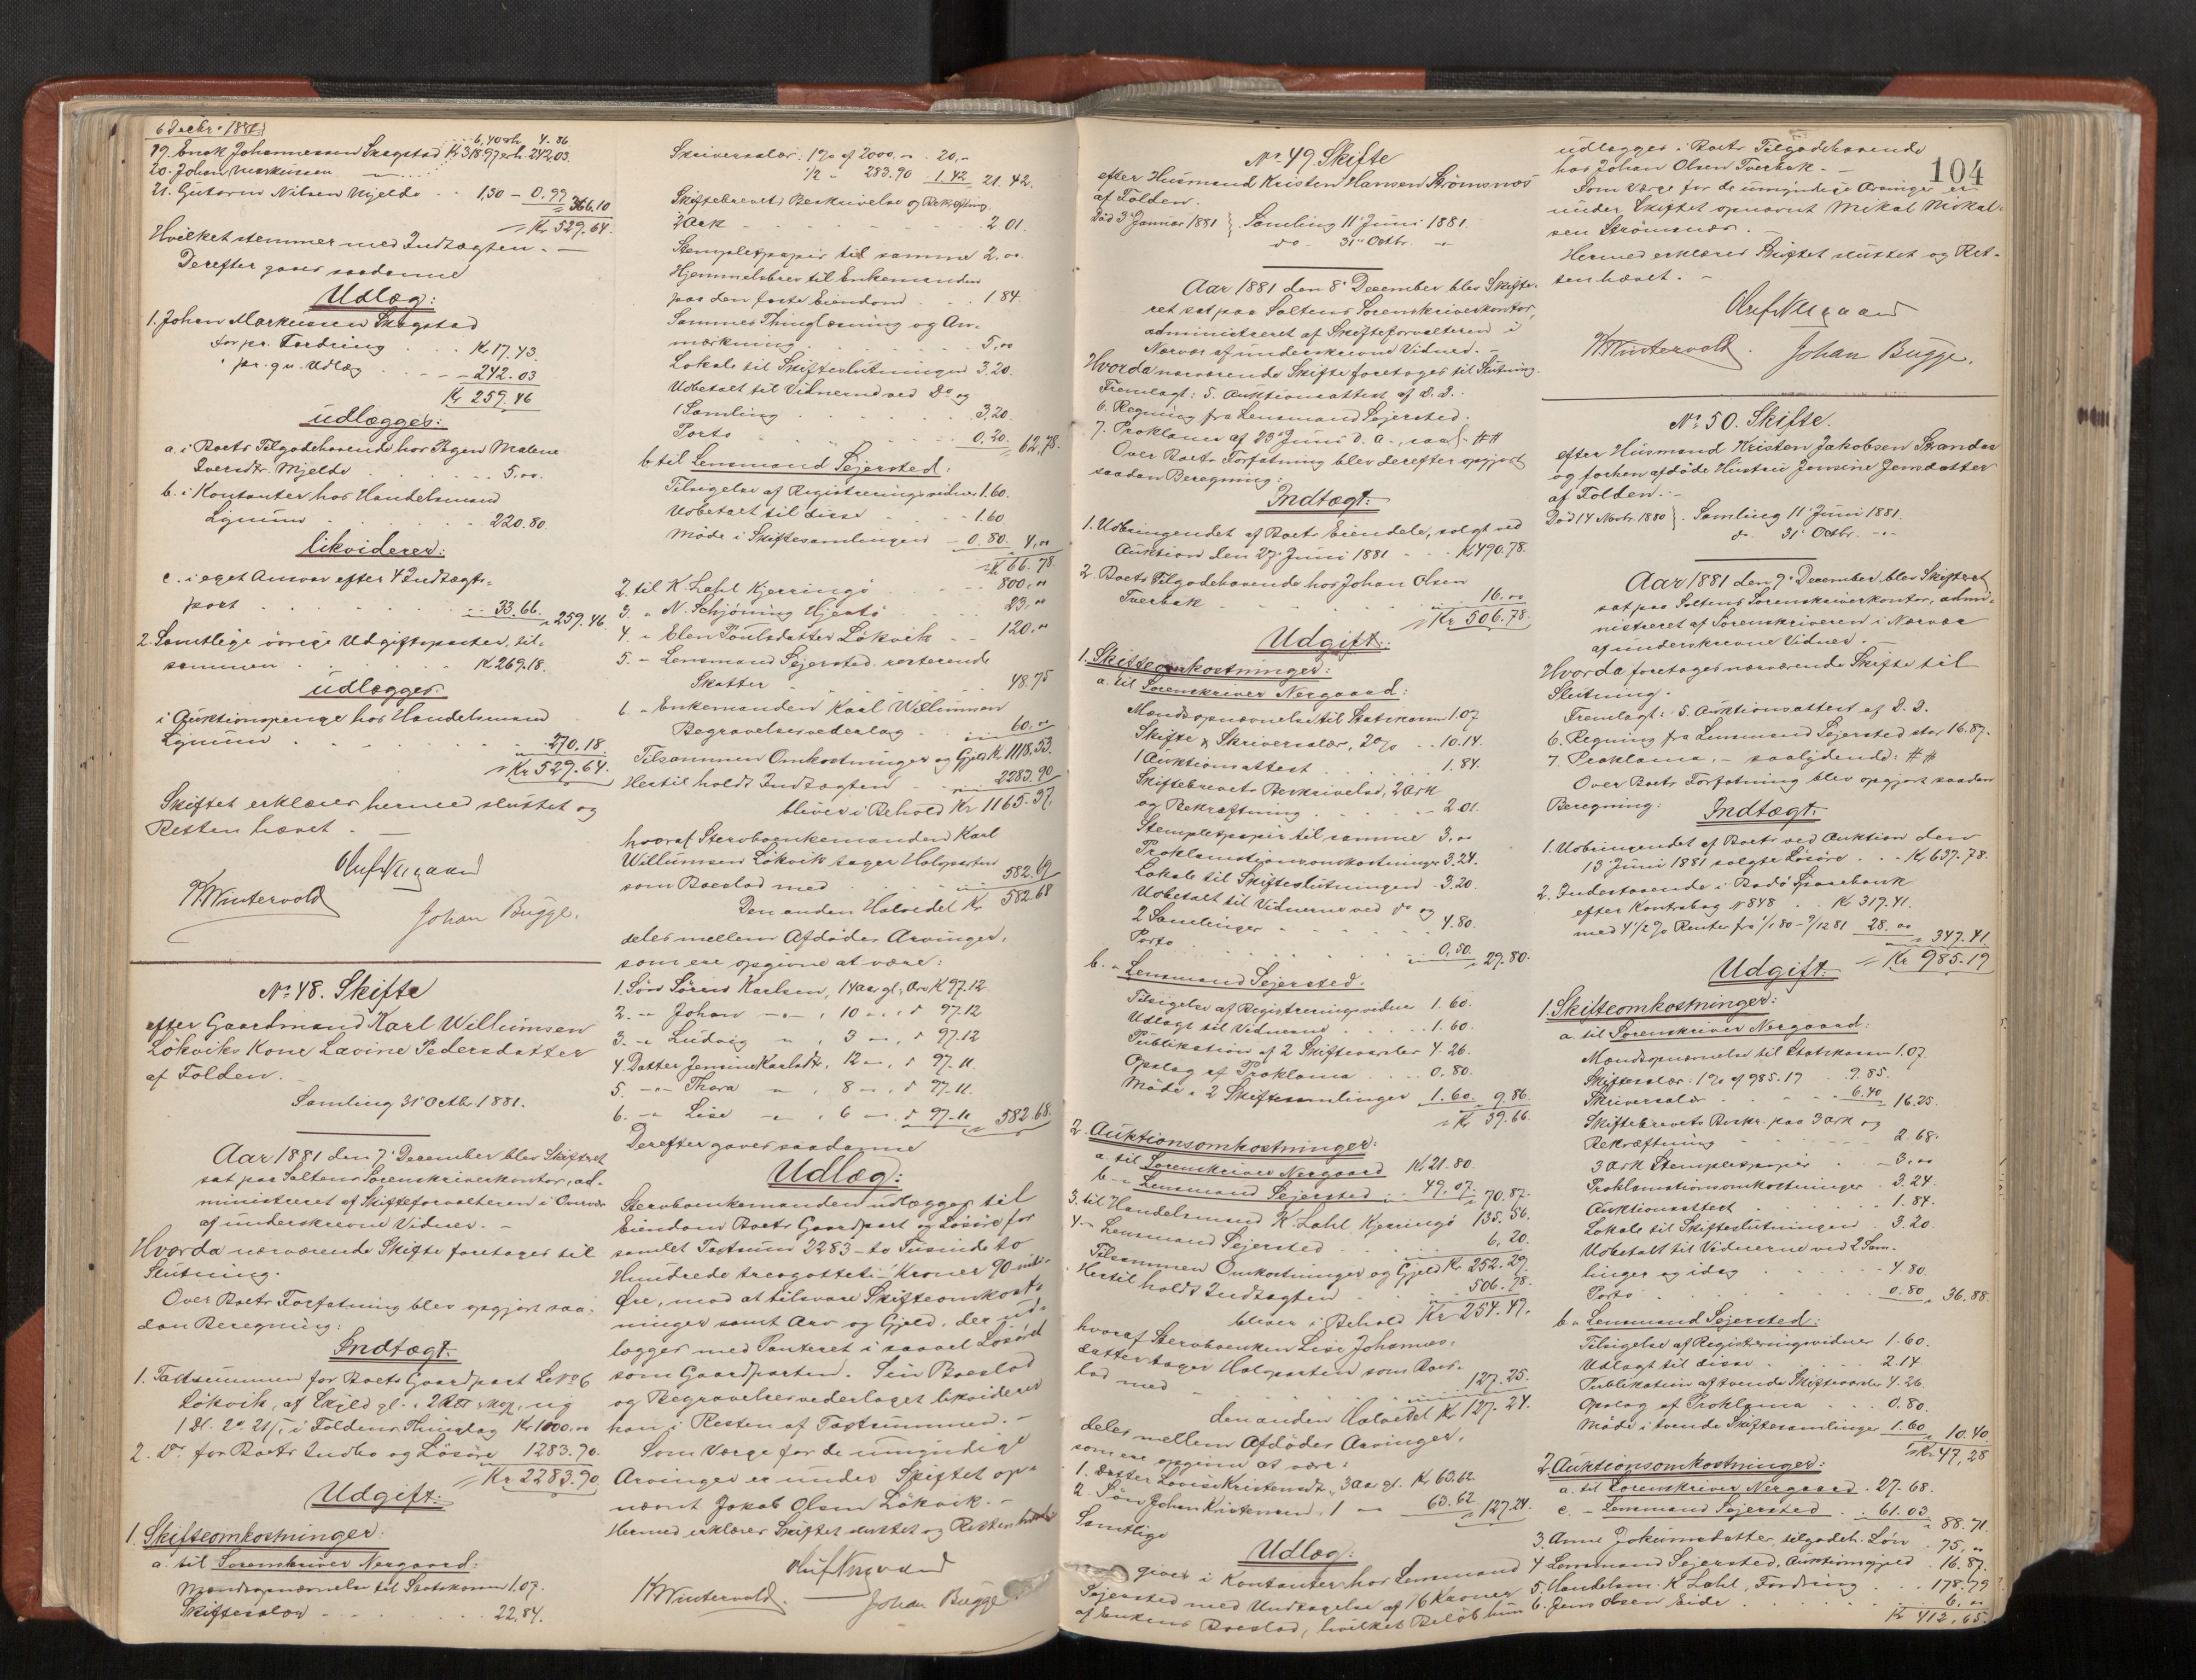 6 Decbr. 1881.
19. Enok Johannessen Skagstad Kr 318.97 erh. 242.03.
6,40 erh. 4.86
20. Johan Markussen
21. Guttorm Nilsen Mjelde 1,30 – 0.99
366.10
Kr 529.64.
Hvilket stemmer med Indtægten. –
Derefter gaves saadanne
Udlæg:
1. Johan Markussen Skagstad
for pr. Fordring Kr 17.43.
" pr. qu. Udlæg – 242.03
Kr 259.46
udlægges:
a. i Boets Tilgodehavende hos Pigen Malene
Iversdtr. Mjelde 5.00.
b. i Kontanter hos Handelsmand
Lynum 220.80.
likviderer:
c. i eget Ansvar efter 4 Indtægts-
post 33.66. 259.46
2. Samtlige øvrige Udgiftsposter, til-
sammen Kr 269.18.
udlægges
i Auktionspenge hos Handelsmand
Lynum 270.18.
Kr 529.64.
Skiftet erklæres hermed sluttet og
Retten hævet. –
Oluf Nergaard
K Wintervold
Johan Bugge.
No. 48. Skifte
efter Gaardmand Karl Willumsen
Løkviks Kone Lavine Pedersdatter
af Folden. –
Samling 31 Octb. 1881.
Aar 1881 den 7. December blev Skifteret
sat paa Saltens Sorenskriverkontor, ad-
ministreret af Skifteforvalteren i Overvær
af underskrevne Vidner. –
Hvorda nærværende Skifte foretages til
Slutning.
Over Boets Forfatning blev opgjort saa-
dan Beregning:
Indtægt:
1. Taxtsummen for Boets Gaardpart L No 6
Løkvik, af Skyld gl. , ny
1 Dl. 2 ort 21 ß, i Foldens Thinglag Kr 1000.00
2. Do for Boets Indbo og Løsøre 1283.90.
Kr 2283.90
Udgift:
1. Skifteomkostninger:
a. til Sorenskriver Nergaard:
Mandsopnævnelse til Statskassen 1.07.
Skiftesalær 22.84.
Skriversalær. 1% af 2000. – 20,–
1/2 – 283.90 1.42 21.42.
Skiftebrevets Beskrivelse og Bekræftning,
2 Ark 2 01.
Stempletpapir til samme 2.00.
Hjemmelsbrev til Enkemanden
paa den faste Eiendom 1.84.
Sammes Thinglæsning og An-
mærkning 5,00
Lokale til Skifteslutningen 3.20.
Udbetalt til Vidnerne ved Do og
1 Samling 3.20.
Porto 0.20. 62,78.
b. til Lensmand Sejersted:
Tilsigelse af Registreringsvidner 1.60.
Udbetalt til disse 1.60.
Møde i Skiftesamlingen 0.80. 4,00
Kr 66.78.
2. til K. Lahl Kjerringø 800,00
3. " N. Schjøning Hjertø 23,00
4. " Elen Poulsdatter Løkvik 120,00
5. " Lensmand Sejersted resterende
Skatter 48.75
6. " Enkemanden Karl Willumsen
Begravelsesvederlag 60.00
Tilsammen Omkostninger og Gjeld Kr 1118.53.
Hertil holdt Indtægten 2283.90
bliver i Behold Kr 1165.37.
hvoraf Stervboenkemanden Karl
Willumsen Løkvik tager Halvparten
som Boeslod med 582.69
Den anden Halvedel Kr 582.68
deles mellem Afdødes Arvinger,
som ere opgivne at være:
1. Søn Søren Karlsen, 14 aar gl., Arv Kr 97.12
2. " Johan " , 10 " , " 97.12
3. " Ludvig " , 3 " , " 97.12
4. Datter Jensine Karlsdtr, 12 " , " 97.11.
5. " Thora " , 8 " , " 97.11.
6. " Lise " , 6 " , " 97.11 582.68.
Derefter gaves saadanne
Udlæg:
Stervboenkemanden udlægges til
Eiendom Boets Gaardpart og Løsøre for
samlet Taxtsum 2283 – to Tusinde to
Hundrede treogotteti – Kroner 90 – nitti –
Øre, mod at tilsvare Skifteomkost-
ninger samt Arv og Gjeld, der ud-
lægges med Panteret i saavel Løsøre
som Gaardparten. Sin Boeslod
og Begravelsesvederlaget likviderer
han i Resten af Taxtsummen. –
Som Værge for de umyndige
Arvinger er under Skiftet op-
nævnt Jakob Olsen Løkvik. –
Hermed erklæres Skiftet sluttet og Retten hævet
Oluf Nergaard
K Wintervold.
Johan Bugge
No. 49 Skifte
efter Husmand Kristen Hansen Strømsnes
af Folden.
Død 3 Januar 1881 } Samling 11 Juni 1881.
do 31 Octbr. "
Aar 1881 den 8. December blev Skifte-
ret sat paa Saltens Sorenskriverkontor,
administreret af Skifteforvalteren i
Nærvær af underskrevne Vidner. –
Hvorda nærværende Skifte foretages til Slutning.
Fremlagt: 5. Auktionsattest af D. D.
6. Regning fra Lensmand Sejersted.
7. Proklama af 23 Juni d. A., saal. ##
Over Boets Forfatning blev derefter opgjort
saadan Beregning:
Indtægt:
1. Udbringendet af Boets Eiendele, solgt ved
Auktion den 27 Juni 1881 Kr 490.78.
2. Boets Tilgodehavende hos Johan Olsen
Tverbak 16.00
Kr 506.78.
Udgift:
1. Skifteomkostninger:
a. til Sorenskriver Nergaard:
Mandsopnævnelse til Statskassen 1.07
Skifte & Skriversalær, 2% 10.14.
1 Auktionsattest 1.84.
Skiftebrevets Beskrivelse, 2 Ark
og Bekræftning 2 01.
Stempletpapir til samme 3.00
Proklamationsomkostninger 3.24.
Lokale til Skifteslutningen 3.20.
Udbetalt til Vidnerne ved do og
2 Samlinger 4.80.
Porto 0,50. 29.80.
b. " Lensmand Sejersted.
Tilsigelse af Registreringsvidner 1.60.
Udlagt til Vidnerne 1.60.
Publikation af 2 Skiftevarsler 4.26.
Opslag af Proklama 0.80.
Møde i 2 Skiftesamlinger 1.60. 9.86.
Kr 39.66.
2. Auktionsomkostninger:
a. til Sorenskriver Nergaard Kr 21.80.
b. " Lensmand Sejersted 49.07. 70.87.
3. til Handelsmand K. Lahl Kjerringø 135.56.
4. " Lensmand Sejersted 6,20.
Tilsammen Omkostninger og Gjeld Kr 252.29.
Hertil holdt Indtægten 506.78.
bliver i Behold Kr 254.49.
hvoraf Stervboenken Lise Johannes-
datter tager Halvparten som Boes-
lod med 127.25.
den anden Halvedel Kr 127.24.
deles mellem Afdødes Arvinger,
som ere opgivne at være:
1. Datter Lovise Kristensdtr, 3 aar gl. Kr 63.62.
2. Søn Johan Kristensen, 1 " 63.62 127.24.
Samtlige
Udlæg:
gives i Kontanter hos Lensmand
Sejersted med Undtagelse af 16 Kroner
af Enkens Boeslod, hvilket Beløb hun
104
udlægges i Boets Tilgodehavende
hos Johan Olsen Tverbak. –
Som Værge for de umyndige Arvinger er
under Skiftet opnævnt Mikal Mikal-
sen Strømsnes.
Hermed erklæres Skiftet sluttet og Ret-
ten hævet. –
Oluf Nergaard
K Wintervold.
Johan Bugge.
No. 50. Skifte.
efter Husmand Kristen Jakobsen Strandaa
og forhen afdøde Hustru Jensine Jensdatter
af Folden. –
Død 14 Novbr. 1880 } Samling 11 Juni 1881.
do 31 Octbr. "
Aar 1881 den 9. December blev Skifteret
sat paa Saltens Sorenskriverkontor, admi-
nistreret af Sorenskriveren i Nærvær
af underskrevne Vidner. –
Hvorda foretages nærværende Skifte til
Slutning.
Fremlagt: 5. Auktionsattest af D. D.
6. Regning fra Lensmand Sejersted stor 16.87.
7. Proklama, – saalydende: ##
Over Boets Forfatning blev opgjort saadan
Beregning:
Indtægt:
1. Udbringendet af Boets ved Auktion den
13 Juni 1881 solgte Løsøre Kr 637.78.
2. Indestaaende i Bodø Sparebank
efter Kontrabog No 848 Kr 319.41.
med 4 1/2 % Renter fra 1/1 80 – 9/12 81 28.00 347.41
Kr 985.19
Udgift:
1. Skifteomkostninger:
a. til Sorenskriver Nergaard:
Mandsopnævnelse til Statskassen 1.07.
Skiftesalær. 1% af 985.19 9.85.
Skriversalær 6.40 16.25.
Skiftebrevets Beskr. paa 3 ark og
Bekræftning 2.68.
3 Ark Stempletpapir 3,00
Proklamationsomkostninger 3.24.
Auktionsattest 1.84.
Lokale til Skifteslutningen 3.20.
Udbetalt til Vidnerne ved 2 Sam-
linger og idag 4.80
Porto 0.80 36.88.
b. " Lensmand Sejersted:
Tilsigelse af Registreringsvidner 1.60.
Udlagt til disse 2.14
Publikation af tvende Skiftevarsler 4.26.
Opslag af Proklama 0.80.
Møde i tvende Skiftesamlinger 1.60 10.40
Kr 47,28
2. Auktionsomkostninger:
a. til Sorenskriver Nergaard 27.68.
c. – Lensmand Sejersted 61.03 88.71.
3. Anne Jokumsdatter, tilgodeh. Løn 75,00
4 Lensmand Sejersted, Auktionsgjeld 16.87.
5. Handelsm. K. Lahl, Fordring 178.79
6. Jens Olsen Eide 6,00
Kr 412,65.